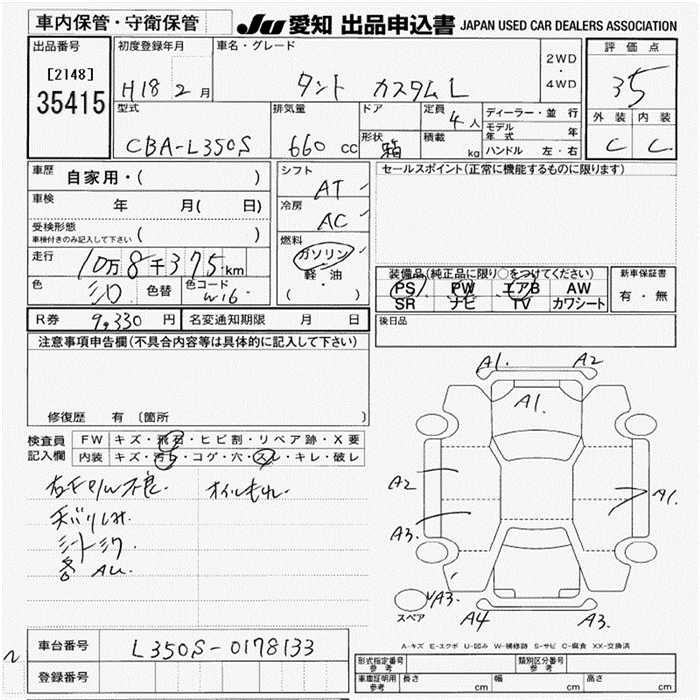 車内保管・守衛保管
JU 愛知 出品申込書 JAPAN USED CAR DEALERS ASSOCIATION
出品番号
[2148]
35415
初度登録年月
H18 2 月
車名・グレード
タント カスタムL
2WD
・
4WD
評価点
35
外装 内装
C C
型式
CBA-L350S
排気量
660 cc
ドア
形状
箱
定員
4 人
積載
kg
ディーラー・並行
モデル年式 年
ハンドル 左・右
車歴
自家用・( )
車検
年 月( 日)
受検形態
車検付きのみ記入して下さい ( )
走行
10万8千375km
色
色替
色コード
W16
シフト
AT
冷房
AC
燃料
ガソリン
軽・油
( )
セールスポイント(正常に機能するものに限ります)
装備品(純正品に限り○をつけてください)
PS PW エアB AW
SR ナビ TV カワシート
新車保証書
有・無
後日品
R券 9,330 円
名変通知期限 月 日
注意事項申告欄(不具合内容等は具体的に記入して下さい)
修復歴 有 〔箇所 〕
検査員
記入欄
FW キズ・飛石・ヒビ割・リペア跡・X要
内装 キズ・汚れ・コゲ・穴・スレ・キレ・破レ
右FP/W不良. オイルもれ.
天バリしみ.
シートシワ.
A1. A2
A1.
A2
A1.
A3.
A3.
A4 A3.
スペア
A-キズ E-エクボ U-凹み W-補修跡 S-サビ C-腐食 XX-交換済
車台番号 L350S-0178133
登録番号
形式指定番号
参考
類別区分番号
参考
車庫証明用
参考
長さ cm 幅 cm 高さ cm